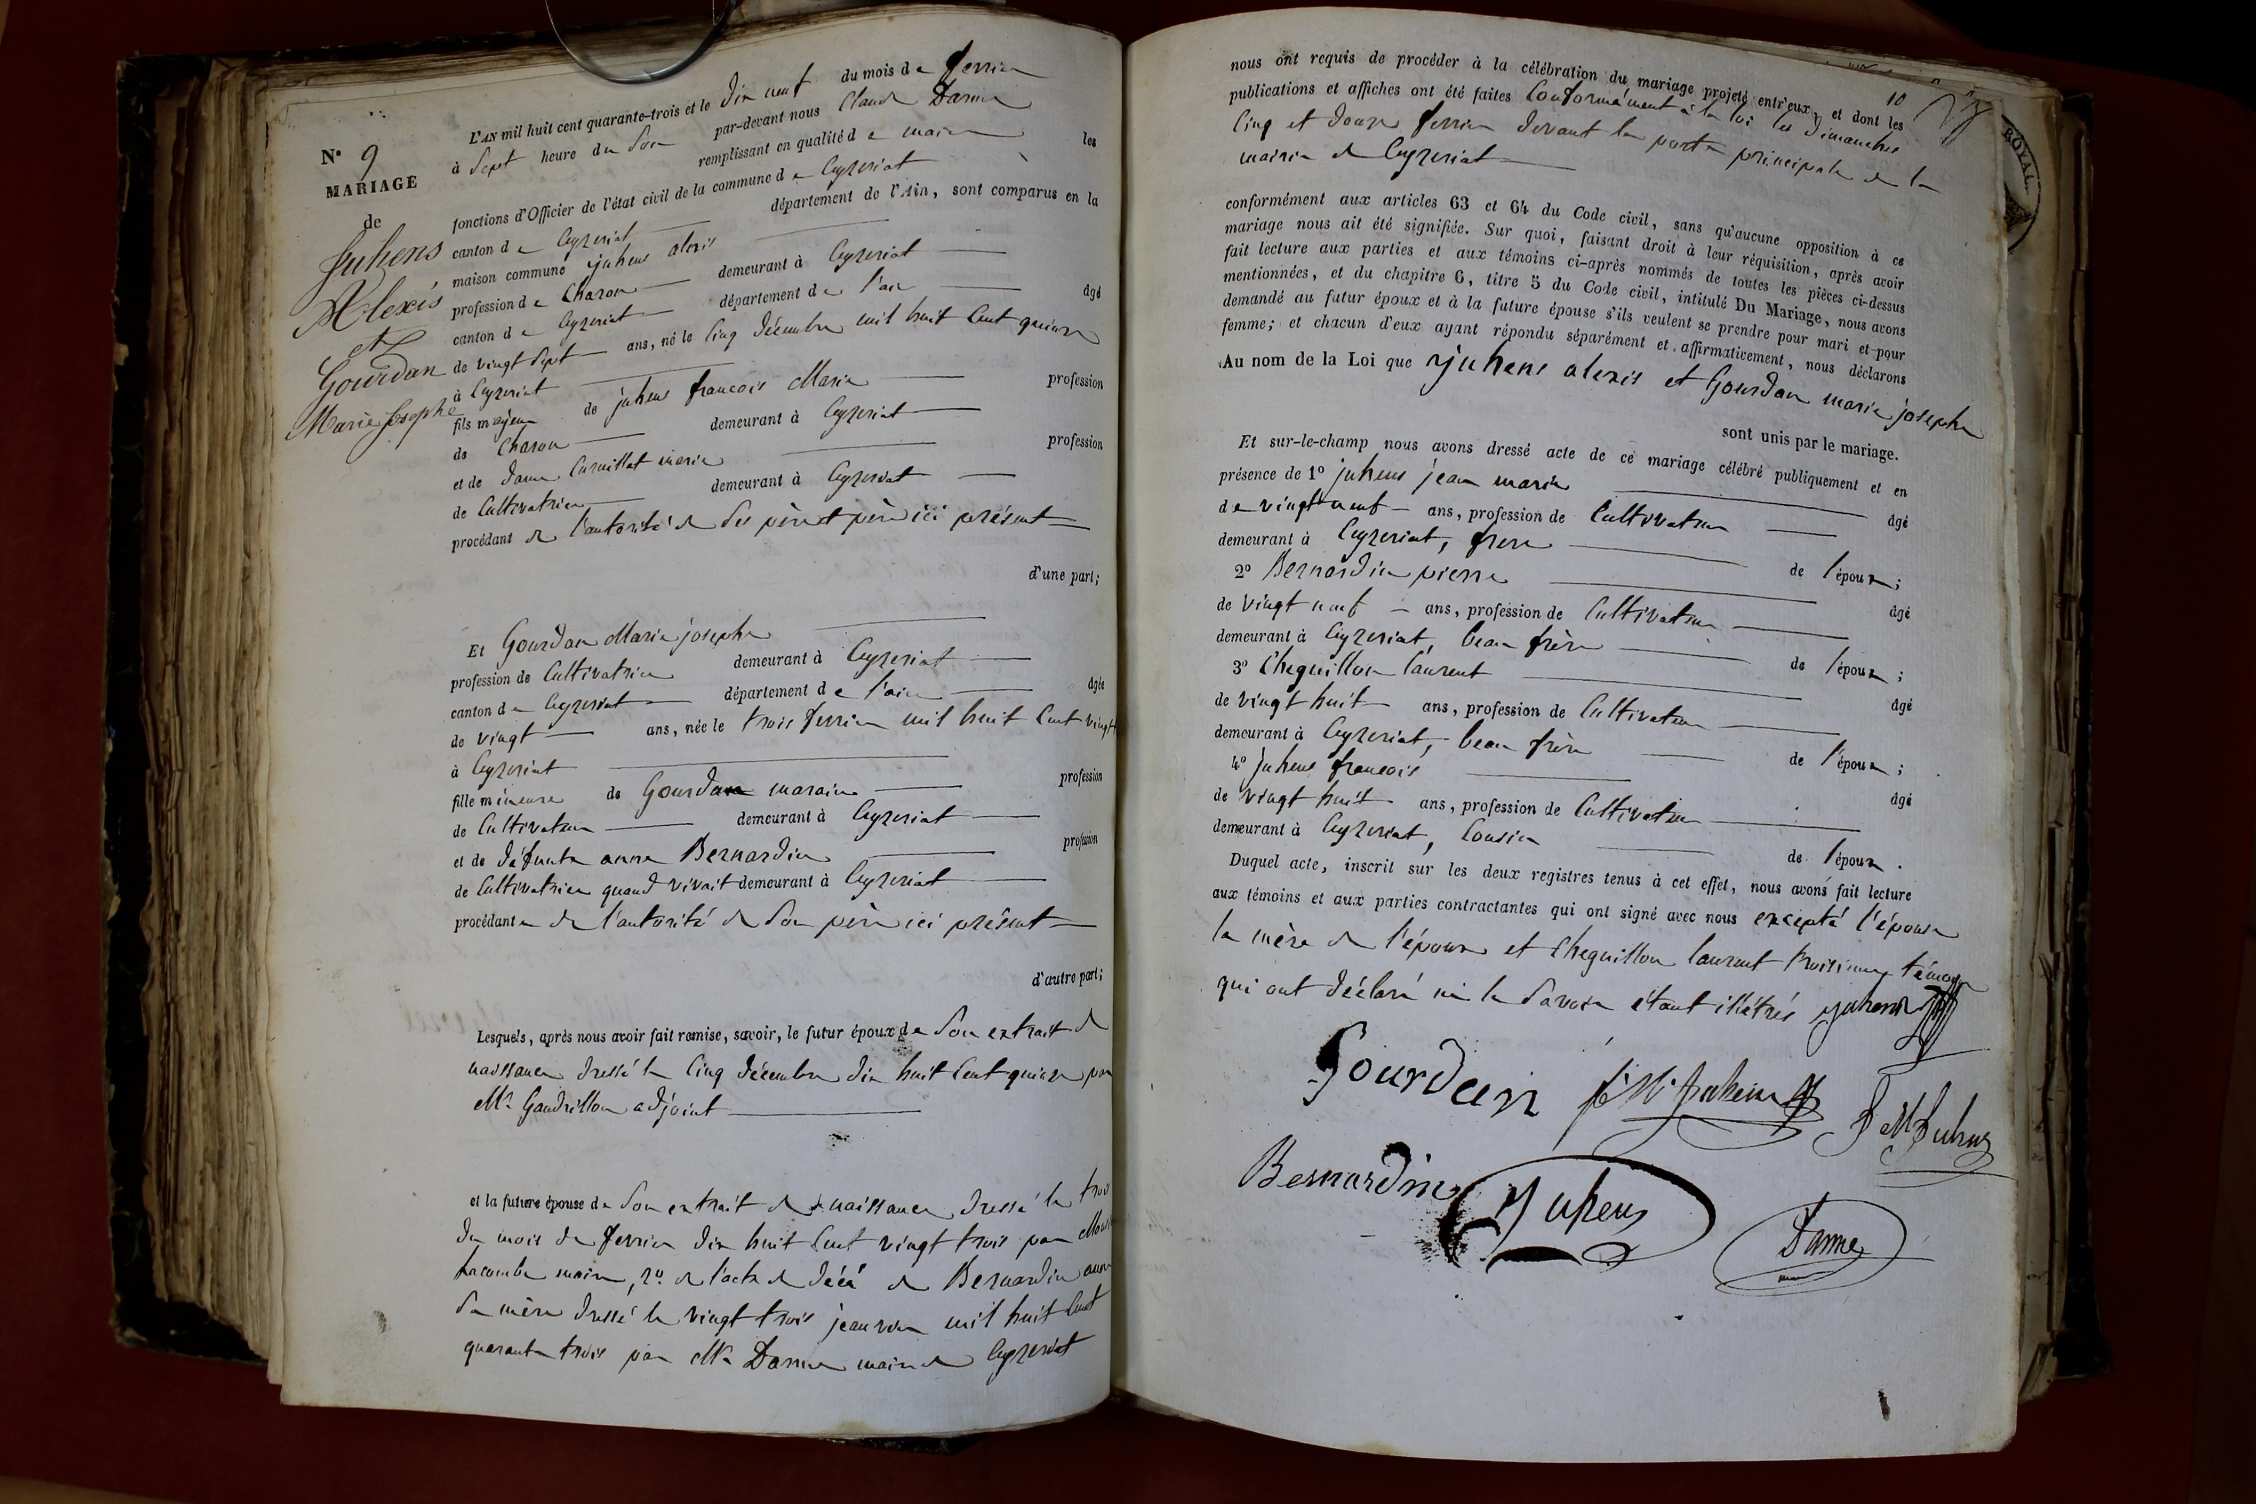 N° 9
MARIAGE
de
Juhens
Alexis
et
Gourdan
Marie Josephe
L'AN mil huit cent quarante-trois et le dix neuf du mois de fevrier
à Sept heure du Soir par-devant nous Claude Darme
remplissant en qualité de maire les
fonctions d'Officier de l'état civil de la commune de Ceyzeriat
canton de Ceyzeriat département de l'Ain, sont comparus en la
maison commune juhens alexis
profession de Charon demeurant à Ceyzeriat
canton de Ceyzeriat département de l'ain âgé
de vingt Sept ans, né le Cinq décembre mil huit Cent quinze
à Ceyzeriat
fils majeur de juhens francois Marie profession
de Charon demeurant à Ceyzeriat
et de dame marie profession
de Cultivatrice demeurant à Ceyzeriat
procédant de l'autorité de Ses père et père ici présent
d'une part;
Et Gourdan Marie josephe
profession de Cultivatrice demeurant à Ceyzeriat
canton de Ceyzeriat département de l'ain âgée
de vingt ans, née le trois fevrier mil huit Cent vingt
à Ceyzeriat
fille mineure de Gourdan profession
de Cultivateur demeurant à Ceyzeriat
et de défunte anne Bernardin profession
de Cultivatrice quand vivait demeurant à Ceyzeriat
procédante de l'autorité de Son père ici présent
d'autre part;
Lesquels, après nous avoir fait remise, savoir, le futur époux de Son extrait de
naissance dressé le Cinq décembre dix huit Cent quinze par
Mr. Gaudrillon adjoint
et la future épouse de Son extrait de naissance dressé le trois
du mois de fevrier dix huit Cent vingt trois par
Lacombe maire, 2° de l'acte de décé de Bernardin anne
Sa mère dressé le vingt trois jeanvier mil huit Cent
quarante trois par Mr Darme maire de Ceyzeriat
10
ROYAL
nous ont requis de procéder à la célébration du mariage projeté entr'eux, et dont les
publications et affiches ont été faites Conformément à la loi les dimanches
Cinq et douze fevrier devant la porte principale de la
mairie de Ceyzeriat
conformément aux articles 63 et 64 du Code civil, sans qu'aucune opposition à ce
mariage nous ait été signifiée. Sur quoi, faisant droit à leur réquisition, après avoir
fait lecture aux parties et aux témoins ci-après nommés de toutes les pièces ci-dessus
mentionnées, et du chapitre 6, titre 5 du Code civil, intitulé Du Mariage, nous avons
demandé au futur époux et à la future épouse s'ils veulent se prendre pour mari et pour
femme; et chacun d'eux ayant répondu séparément et affirmativement, nous déclarons
Au nom de la Loi que juhens alexis et Gourdan marie josephe
sont unis par le mariage.
Et sur-le-champ nous avons dressé acte de ce mariage célébré publiquement et en
présence de 1° juhens jean marie âgé
de vingt neuf ans, profession de Cultivateur
demeurant à Ceyzeriat, frere de l'époux;
2° Bernardin pierre âgé
de vingt neuf ans, profession de Cultivateur
demeurant à Ceyzeriat, beau frère de l'époux;
3° Cheguillon laurent âgé
de vingt huit ans, profession de Cultivateur
demeurant à Ceyzeriat, beau frère de l'époux;
4° juhens francois âgé
de vingt huit ans, profession de Cultivateur
demeurant à Ceyzeriat, Cousin de l'époux.
Duquel acte, inscrit sur les deux registres tenus à cet effet, nous avons fait lecture
aux témoins et aux parties contractantes qui ont signé avec nous excepté l'épouse
la mère de l'époux et Cheguillon laurent troisieme témoin
qui ont déclaré ne le Savoir étant illétrés juhens
Gourdan f. M. Juhens J M Juhens
Bernardin Juhens Darme